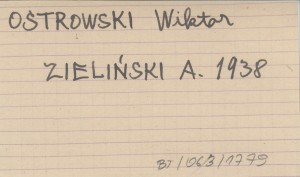 OSTROWSKI Wiktor
ZIELIŃSKI A. 1938
BJ/063/1779